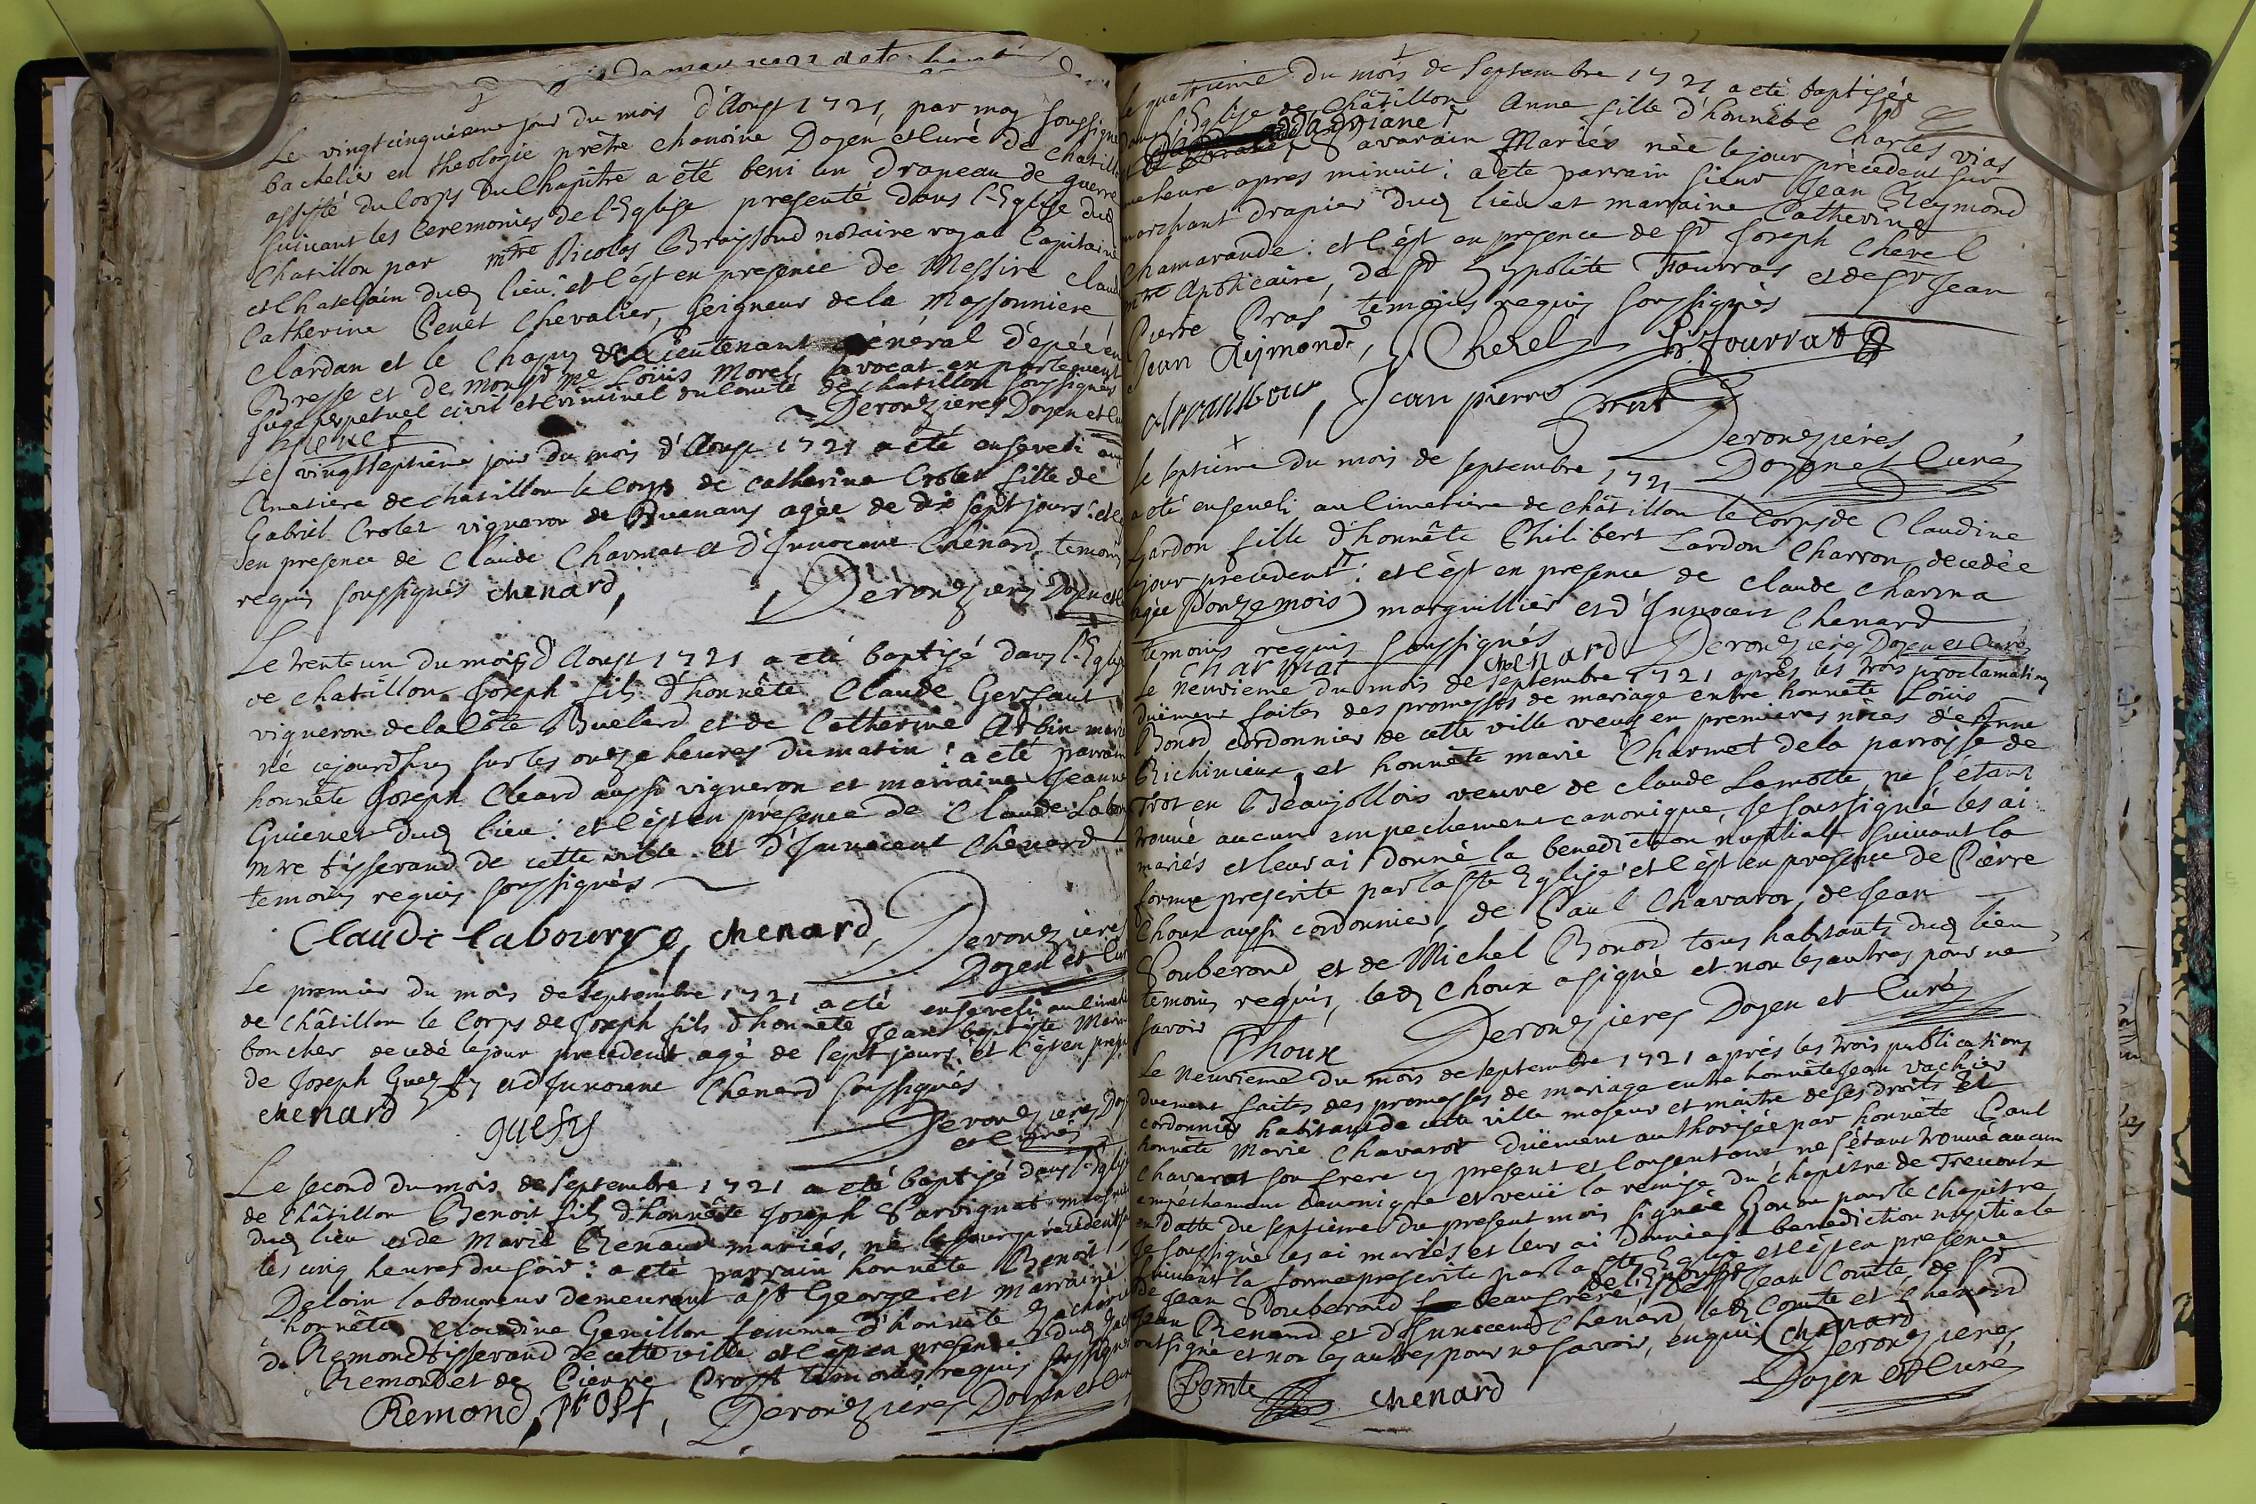 Le vingt cinquiéme jour du mois d'Aoust 1721, par moy soussigné
bachelier en theologie prêtre chanoine Doyen et Curé de Chatillon
assisté du Corps du Chapitre a été beni un Drapeau de guerre
suivant les Ceremonies de l'Eglise presenté dans l'Eglise dud
Chatillon par mtre Nicolas Brossoud notaire royal Capitaine
et Chatelain dud lieu: et c'est en presence de Messire Claude
Catherine Cenet Chevalier, seigneur de la Massonniere
Clardan et le Chapuy Lieutenant Général d'épée en
Bresse et de monsr me Loüis Morel, avocat en parlement
juge perpetuel civil et criminel du Comté de Chatillon soussignés
Deronzieres Doyen et Curé
Le vingt septiéme jour du mois d'Aoust 1721 a été enseveli au
Cimetiere de chatillon le Corps de Catherine Crolet fille de
Gabriel Crolet vigneron de agée de dix sept jours: et c'est
en presence de Claude Charmat et d'Innocent Chenard temoins
requis soussignés chenard,
Deronzieres Doyen et
Le trente un du mois d'Aoust 1721 a été baptisé dans l'Eglise
de chatillon Joseph fils d'honnête Claude Gerfaut
vigneron de la Côte Buelard et de Catherine Arbin mariés
né cejourdhuy sur les onze heures du matin: a été parrain
honnête Joseph Cleard aussi vigneron et marraine Jeanne
Guienet dud lieu: et c'est en presence de Claude Labou
mtre tisserand de cette ville et d'Innocent Chenard
temoins requis soussignés
Claude labourye, chenard, Deronzieres
Doyen et Curé
Le premier du mois de septembre 1721 a été enseveli au Cimetiere
de Châtillon le Corps de Joseph fils d'honnête Jean baptiste
boucher decedé le jour precedent agé de sept jours: et c'est en presence
de Joseph et d'Innocent Chenard soussignés
chenard guesty Deronzieres Doyen
et Curé
Le second du mois de septembre 1721 a été baptisé dans l'Eglise
de Châtillon Benoit fils d'honnête Joseph Savignat
dud lieu et de Marie Renaud mariés, né le jour précédent sur
les cinq heures du soir: a été parrain honnête Benoit
Deloin laboureur demeurant a St George: et marraine
honnête Claudine Genillon femme d'honnête Zacharie
Remond tisserand de cette ville et c'est en presence dud
Remond et de Pierre Prost temoins requis soussignés
Remond, prost, Deronzieres Doyen et Curé
Le quatriéme du mois de Septembre 1721 a eté baptisée
dans l'Eglise de Châtillon Anne fille d'honnête Charles vias
et d'adriane Savarain Mariés née le jour précedent sur
une heure apres minuit: a été parrain sieur Jean Reymond
marchant drapier dud lieu et marraine Catherine
Chamarande: et c'est en presence de sr Joseph Cherel
mtre Apoticaire, de sr Hypolite Fourras et de sr Jean
Pierre Pras temoins requis soussignés
Jean Reymond, J Cherel h Fourrat
Jean pierre
Deronzieres
Doyen et Curé
Le septiéme du mois de septembre 1721
a été enseveli au Cimetiere de châtillon le Corps de Claudine
Lardon fille d'honnête Philibert Lardon Charron, decedée
le jour precedent: et c'est en presence de Claude Charma
agée d'onze mois marguillier et d'Innocent Chenard
temoins requis soussignés
charmat chenard Deronzieres Doyen et Curé
Le neuvieme du mois de septembre 1721 après les trois proclamations
duëment faites des promesses de mariage entre honnête Loüis
Bonod cordonnier de cette ville veuf en premieres nôces d'Anne
Richinieux et honnête marie Charmet de la parroisse de
Trot en Beaujollois veuve de Claude Lamotte, ne s'étant
trouvé aucun empechement canonique, Je soussigné les ai
mariés et leur ai donné la benediction nuptiale suivant la
forme prescrite par la ste Eglise et c'est en presence de Pierre
Choux aussi cordonnier, de Paul Chavarot, de Jean
Souberand et de Michel Bonod tous habitants dud lieu
temoins requis, led Choux a signé et non les autres pour ne
savoir
Choux Deronzieres Doyen et Curé
Le Neuvieme du mois de septembre 1721 aprés les trois publications
duement faites des promesses de mariage entre honnête Jean vachier
cordonnier habitant de cette ville majeur et maitre de ses droits et
honnête Marie Chavarot duëment authorisée par honnête Paul
Chavarot son frere cy present et consentant ne s'étant trouvé aucun
empechement canonique et veuë la remise du chapitre de Trevoulx
en datte du septiéme du present mois signée pour le chapitre
Je soussigné les ai mariés et leur ai donné la benediction nuptiale
suivant la forme prescrite par la ste Eglise et c'est en presence
de Jean Souberand beaufrere de l'Epouse de sr Jean Comte, de sr
Jean Renaud et d'Innocent Chenard led Comte et Chenard
ont signé et non les autres pour ne savoir, enquis
Comte chenard Deronzieres
Doyen et Curé